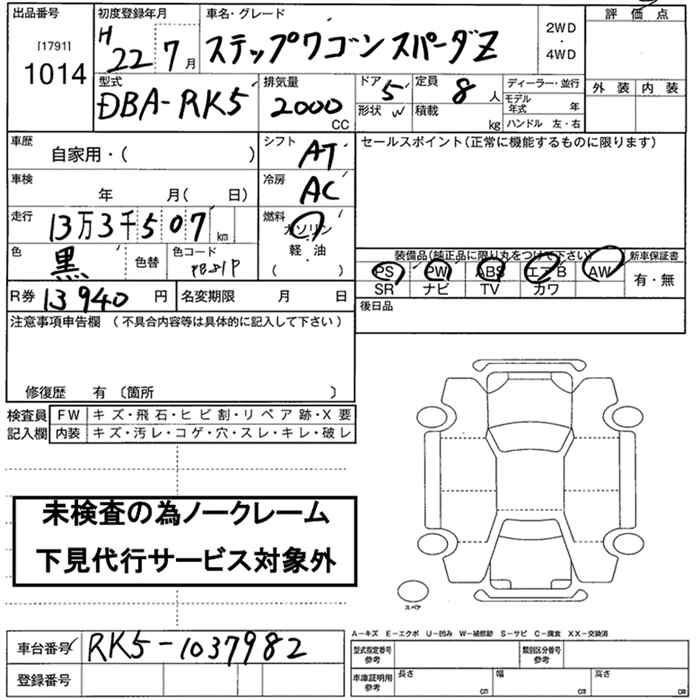 出品番号 初度登録年月 車名・グレード 評価点
[1791] 1014 H22 7月 ステップワゴンスパーダZ 2WD・4WD
型式 排気量 ドア 5 定員 8人 ディーラー・並行 外装 内装
DBA-RK5 2000 CC 形状 W 積載 kg モデル年式 年
ハンドル 左・右
車歴 自家用・( ) シフト AT セールスポイント(正常に機能するものに限ります)
車検 年 月( 日) 冷房 AC
走行 13万3千507km 燃料 ガソリン・軽・油 ( )
色 黒 色替 色コード
装備品(純正品に限り丸をつけて下さい) 新車保証書
PS PW ABS エアB AW 有・無
SR ナビ TV カワ
R券 13940円 名変期限 月 日 後日品
注意事項申告欄(不具合内容等は具体的に記入して下さい)
修復歴 有〔箇所 〕
検査員記入欄 FW キズ・飛石・ヒビ割・リペア跡・X要
内装 キズ・汚レ・コゲ・穴・スレ・キレ・破レ
未検査の為ノークレーム
下見代行サービス対象外
スペア
A-キズ E-エクボ U-凹み W-補修跡 S-サビ C-腐食 XX-交換済
車台番号 RK5-1037982 型式指定番号 参考 類別区分番号 参考
登録番号 車庫証明用 参考 長さ cm 幅 cm 高さ cm